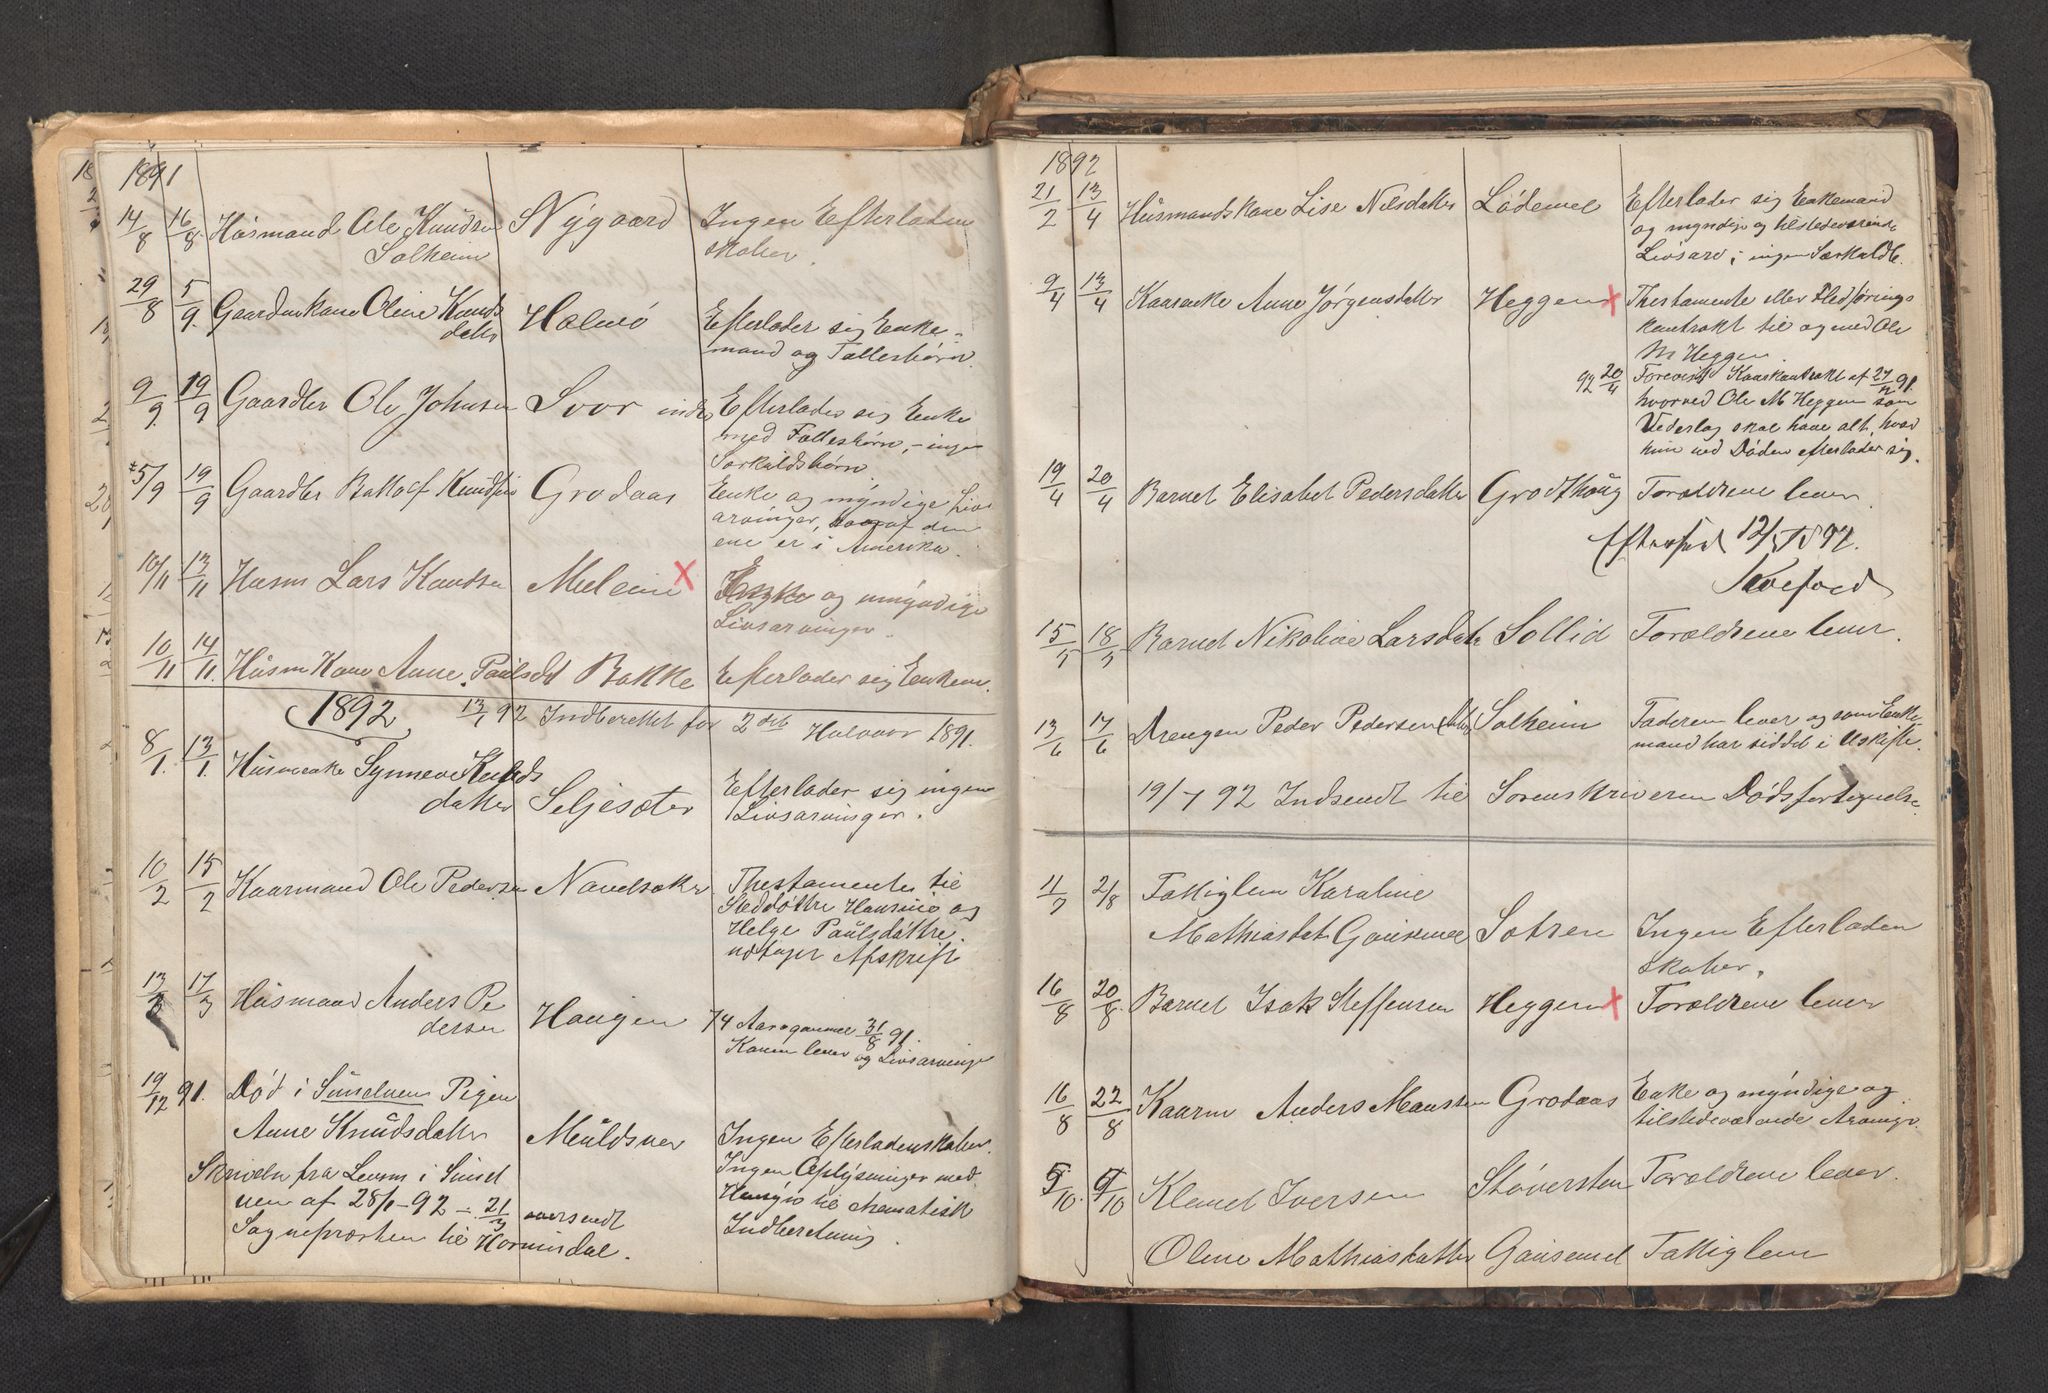 1891
14/8 16/8 Husmand Ole Knudsen Nygaard Ingen Efterladen
Solheim skaber.
29/8 5/9 Gaardmkane Oline Knuds Holmö Efterlader sig Enke-
datter mand og Fællesbørn.
9/9 19/9 Gaardbr Ole Johnsen Svor indre Efterlader sig Enke
med Fællesbørn, - ingen
Særkuldsbørn
15/9 19/9 Gaardbr Knudsen Grodaas Enke og myndige Livs
arvinger, hvoraf den
ene er i Amerika.
10/11 13/11 Husm Lars Knudsen Muleim x Enke og myndige
Livsarvinger.
10/11 14/11 Husm Kone Anne Paulsdt Bakke Efterlader sig Enkem.
1892 13/1 92 Indberettet for 2det Halvaar 1891.
8/1 13/1 Husmenke Synneve Knuds
datter Seljesæter Efterlader sig ingen
Livsarvinger.
10/2 15/2 Kaarmand Ole Pedersen Navelsaker Thestamente til
Steddøttre Hansine og
Helge Paulsdøttre
udtager Afskrift
13/3 17/3 Husmand Anders Pe
dersen Haugen 74 Aar gammel 31/8 91.
Konen lever og Livsarvinge
19/12 91. Død i Sunelven Pigen
Anne Knudsdatter Muldsvor Ingen Efterladenskaber.
Skriveln fra Lensm i Sunel Ingen Oplysninger med
ven af 28/1-92 - 21/3 oversendt Hensyn til thematisk
Sognepræsten til Hornindal. Indberetning.
1892
21/2 13/4 Husmandskone Lise Nilsdatter Lødemel Efterlader sig Enkemand
og myndige og tilstedeværende
Livsarv; ingen Særkuldb.
9/4 13/4 Kaarenke Anne Jørgensdatter Heggen x Thestamente eller Fledførings
kontrakt til og med Ole
M Heggen.
92 20/4 Forevist Kaarkontrakt af 27/12 91.
hvorved Ole M Heggen som
Vederlag skal have alt, hvad
hun ved Døden efterlader sig.
19/4 20/4 Barnet Elisabet Pedersdatter Grodthaug Forældrene lever
Efterseet 12/5 1892.
Koefoed
15/5 18/5 Barnet Nikoline Larsdatr Sollid Forældrene lever.
13/6 17/6 Drengen Peder Pedersen Solheim Faderen lever og som Enke-
mand har siddet i Uskifte.
19/7 92 Indsendt til Sorenskriveren Dødsfortegnelse
11/7 2/8 Fattiglem Karoline
Mathiasdat Gausemel Sætren Ingen Efterladen
skaber.
16/8 20/8 Barnet Isak Steffensen Heggen x Forældrene lever
16/8 22/8 Kaarm Anders Monsen Grodaas Enke og myndige og
tilstedeværende Arvinge.
5/10 9/10 Klemet Iversen Støversten Forældrene lever.
Oline Mathiasdatter Gausemel Fattiglem